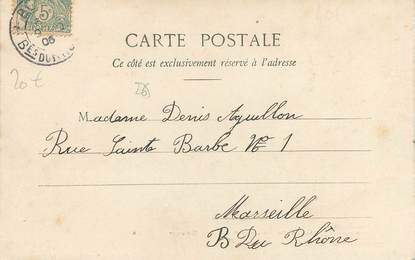 5
06
CARTE POSTALE
Ce côté est exclusivement réservé à l'adresse
20 €
Madame Denis Aguillon
Rue Sainte Barbe No 1
Marseille
B Du Rhône